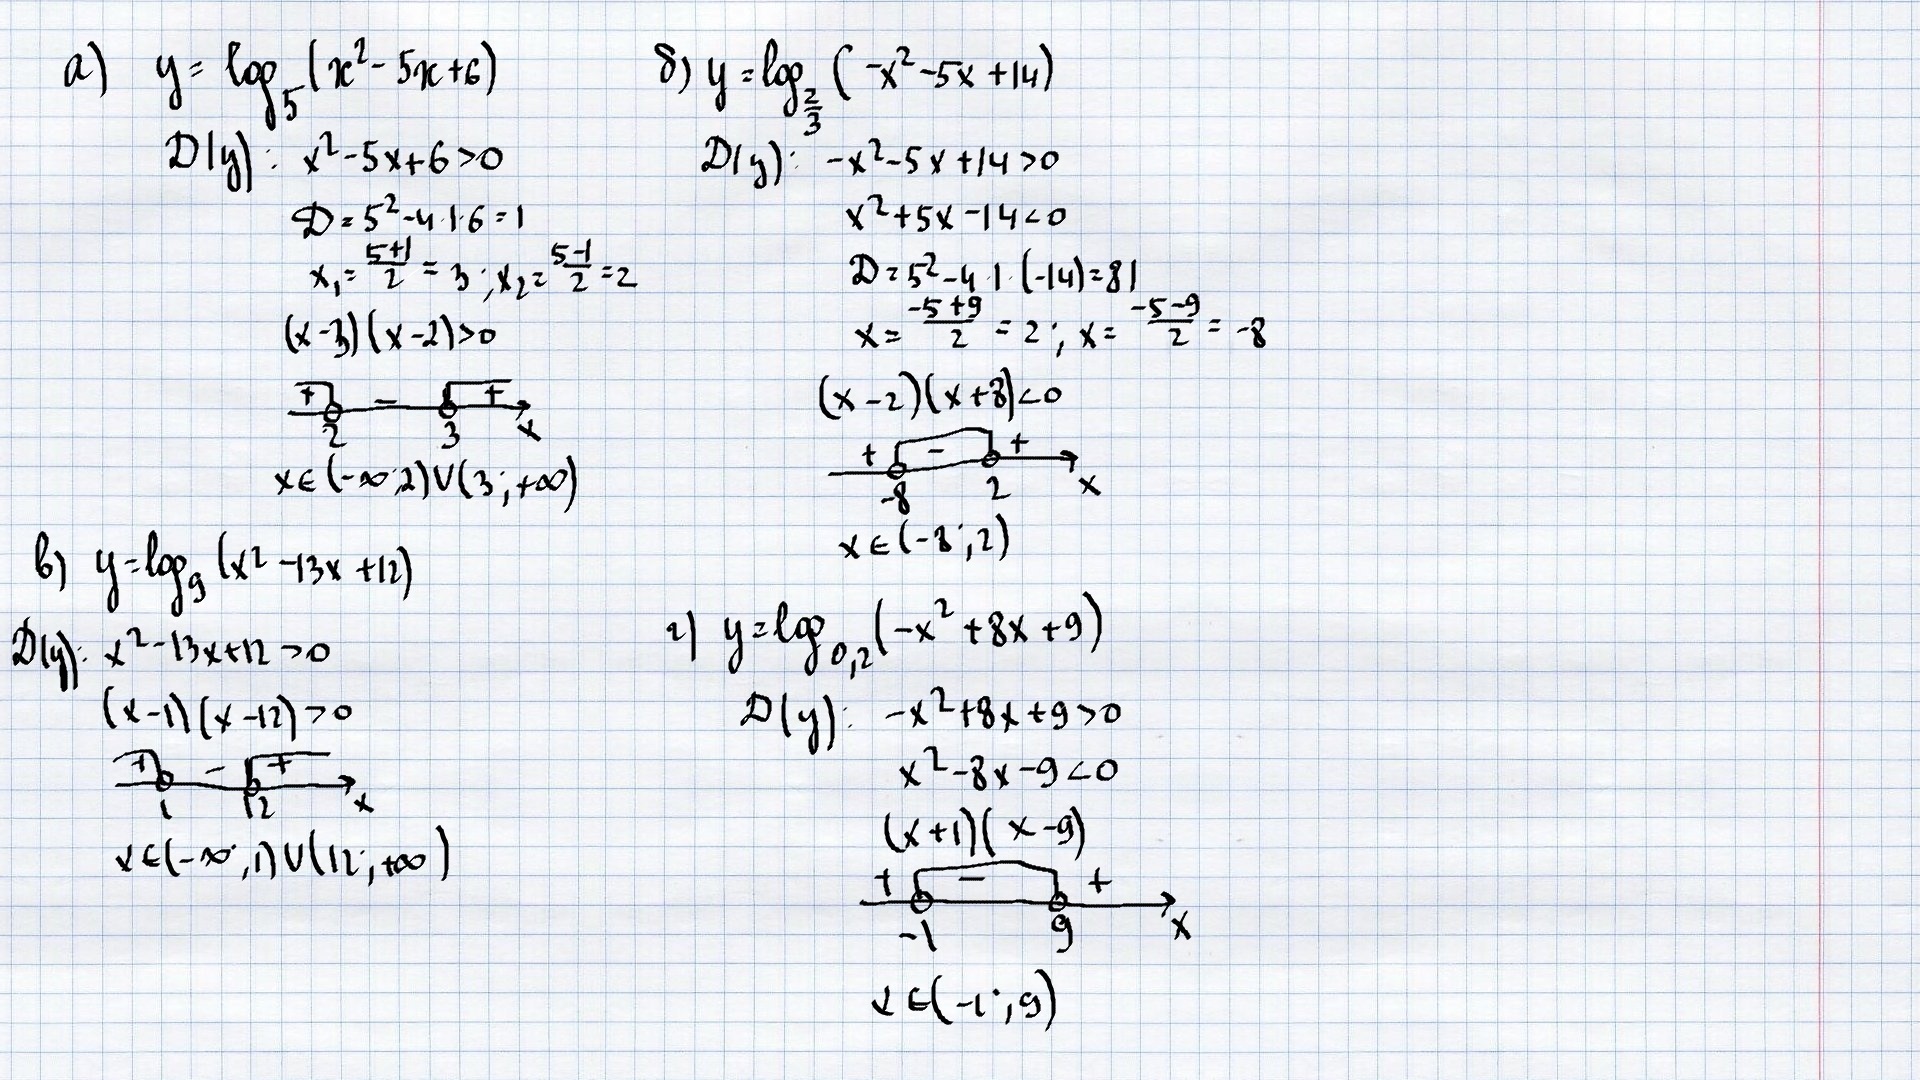 а) y = log₅(x² - 5x + 6)
D(y): x² - 5x + 6 > 0
D = 5² - 4·1·6 = 1
x₁ = (5+1)/2 = 3; x₂ = (5-1)/2 = 2
(x - 3)(x - 2) > 0
+ - +
2 3 x
x ∈ (-∞; 2) ∪ (3; +∞)
б) y = log_{2/3}(-x² - 5x + 14)
D(y): -x² - 5x + 14 > 0
x² + 5x - 14 < 0
D = 5² - 4·1·(-14) = 81
x = (-5+9)/2 = 2; x = (-5-9)/2 = -8
(x - 2)(x + 8) < 0
+ - +
-8 2 x
x ∈ (-8; 2)
в) y = log₉(x² - 13x + 12)
D(y): x² - 13x + 12 > 0
(x - 1)(x - 12) > 0
+ - +
1 12 x
x ∈ (-∞; 1) ∪ (12; +∞)
г) y = log_{0,2}(-x² + 8x + 9)
D(y): -x² + 8x + 9 > 0
x² - 8x - 9 < 0
(x + 1)(x - 9)
+ - +
-1 9 x
x ∈ (-1; 9)